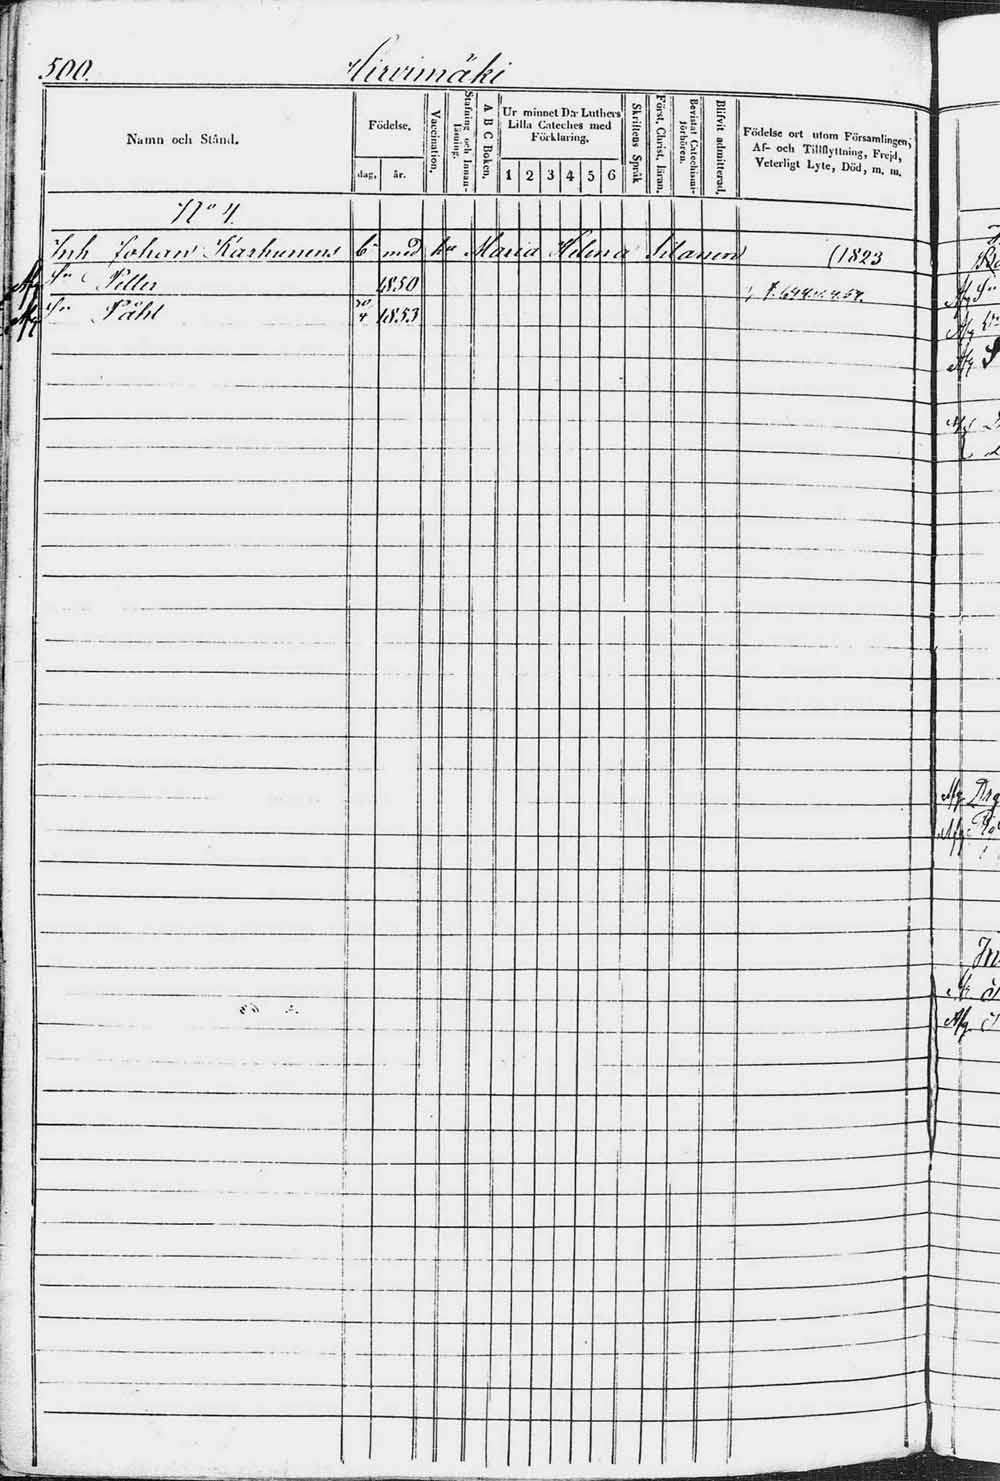 500. Hirvimäki
Namn och Stånd.
Födelse.
dag. år.
Vaccination.
Stafning och Innanläsning.
A B C Boken.
Ur minnet D:r Luthers
Lilla Cateches med
Förklaring.
1 2 3 4 5 6
Skriftens Språk
Först. Christ. läran.
Bevistat Catechismiförhören.
Blifvit admitterad.
Födelse ort utom Församlingen,
Af- och Tillflyttning, Frejd,
Veterligt Lyte, Död, m. m.
No 4.
Inh Johan Karhunens b med hu Maria Helena Silanen (1823
Afg Sn Petter 1850
Afg Sn Påhl 30/4 1853